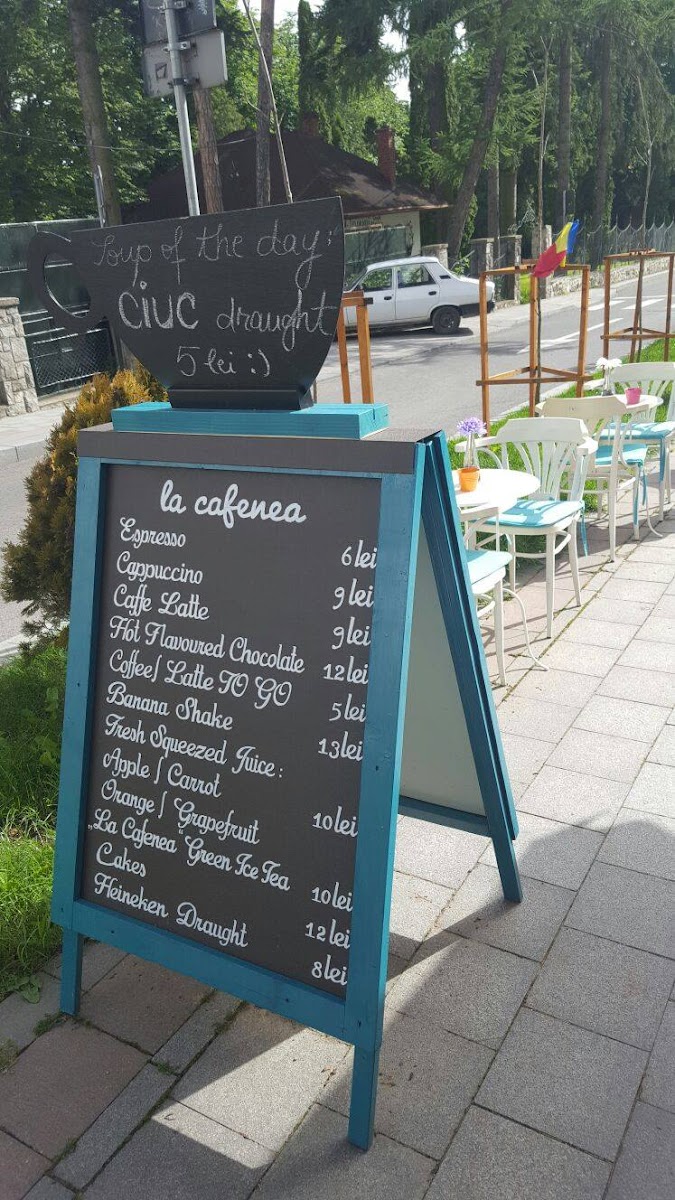 Soup of the day:
CIUC draught
5 lei :)
la cafenea
Espresso 6 lei
Cappuccino 9 lei
Caffe Latte 9 lei
Hot Flavoured Chocolate 12 lei
Coffee/ Latte TO GO 5 lei
Banana Shake 13 lei
Fresh Squeezed Juice:
Apple / Carrot
Orange / Grapefruit 10 lei
„La Cafenea“ Green Ice Tea 10 lei
Cakes 12 lei
Heineken Draught 8 lei